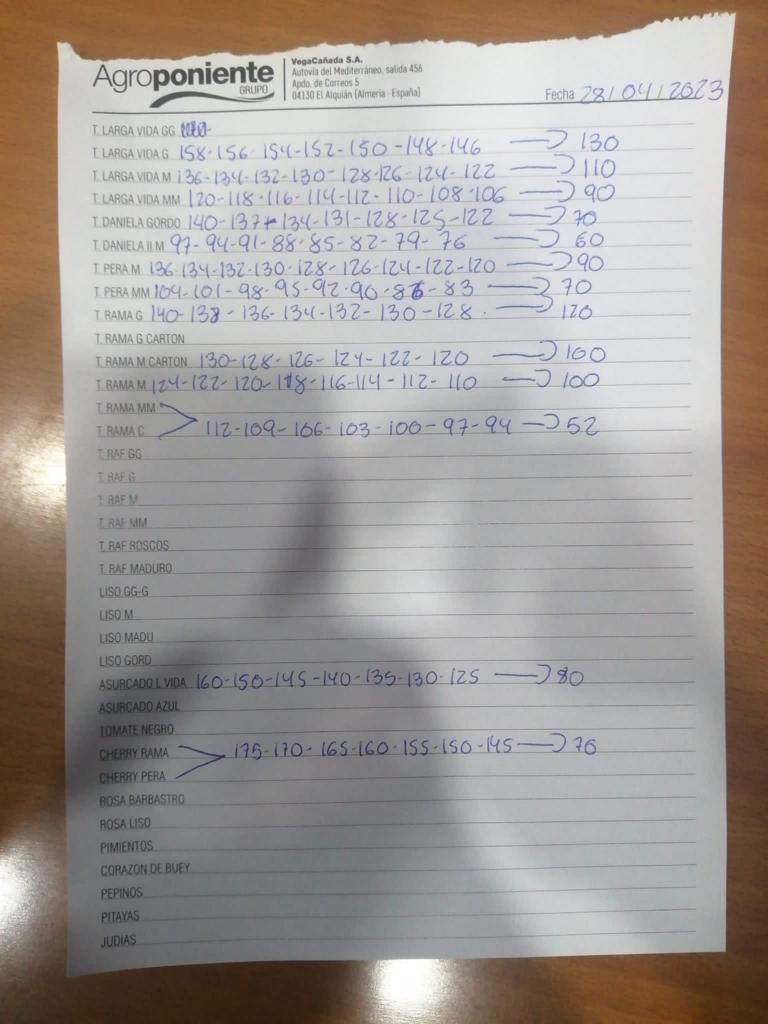 Agroponiente
GRUPO
VegaCañada S.A.
Autovía del Mediterráneo, salida 456
Apdo. de Correos 5
04130 El Alquián (Almería · España)
Fecha 28/04/2023
T. LARGA VIDA GG
T. LARGA VIDA G 158-156-154-152-150-148-146 → 130
T. LARGA VIDA M 136-134-132-130-128-126-124-122 → 110
T. LARGA VIDA MM 120-118-116-114-112-110-108-106 → 90
T. DANIELA GORDO 140-137-134-131-128-125-122 → 70
T. DANIELA II M 97-94-91-88-85-82-79-76 → 60
T. PERA M 136-134-132-130-128-126-124-122-120 → 90
T. PERA MM 104-101-98-95-92-90-86-83 → 70
T. RAMA G 140-138-136-134-132-130-128 → 120
T. RAMA G CARTON
T. RAMA M CARTON 130-128-126-124-122-120 → 100
T. RAMA M 124-122-120-118-116-114-112-110 → 100
T. RAMA MM
T. RAMA C 112-109-106-103-100-97-94 → 52
T. RAF GG
T. RAF G
T. RAF M
T. RAF MM
T. RAF ROSCOS
T. RAF MADURO
LISO GG-G
LISO M
LISO MADU
LISO GORD
ASURCADO L VIDA 160-150-145-140-135-130-125 → 80
ASURCADO AZUL
TOMATE NEGRO
CHERRY RAMA 175-170-165-160-155-150-145 → 76
CHERRY PERA
ROSA BARBASTRO
ROSA LISO
PIMIENTOS
CORAZON DE BUEY
PEPINOS
PITAYAS
JUDIAS